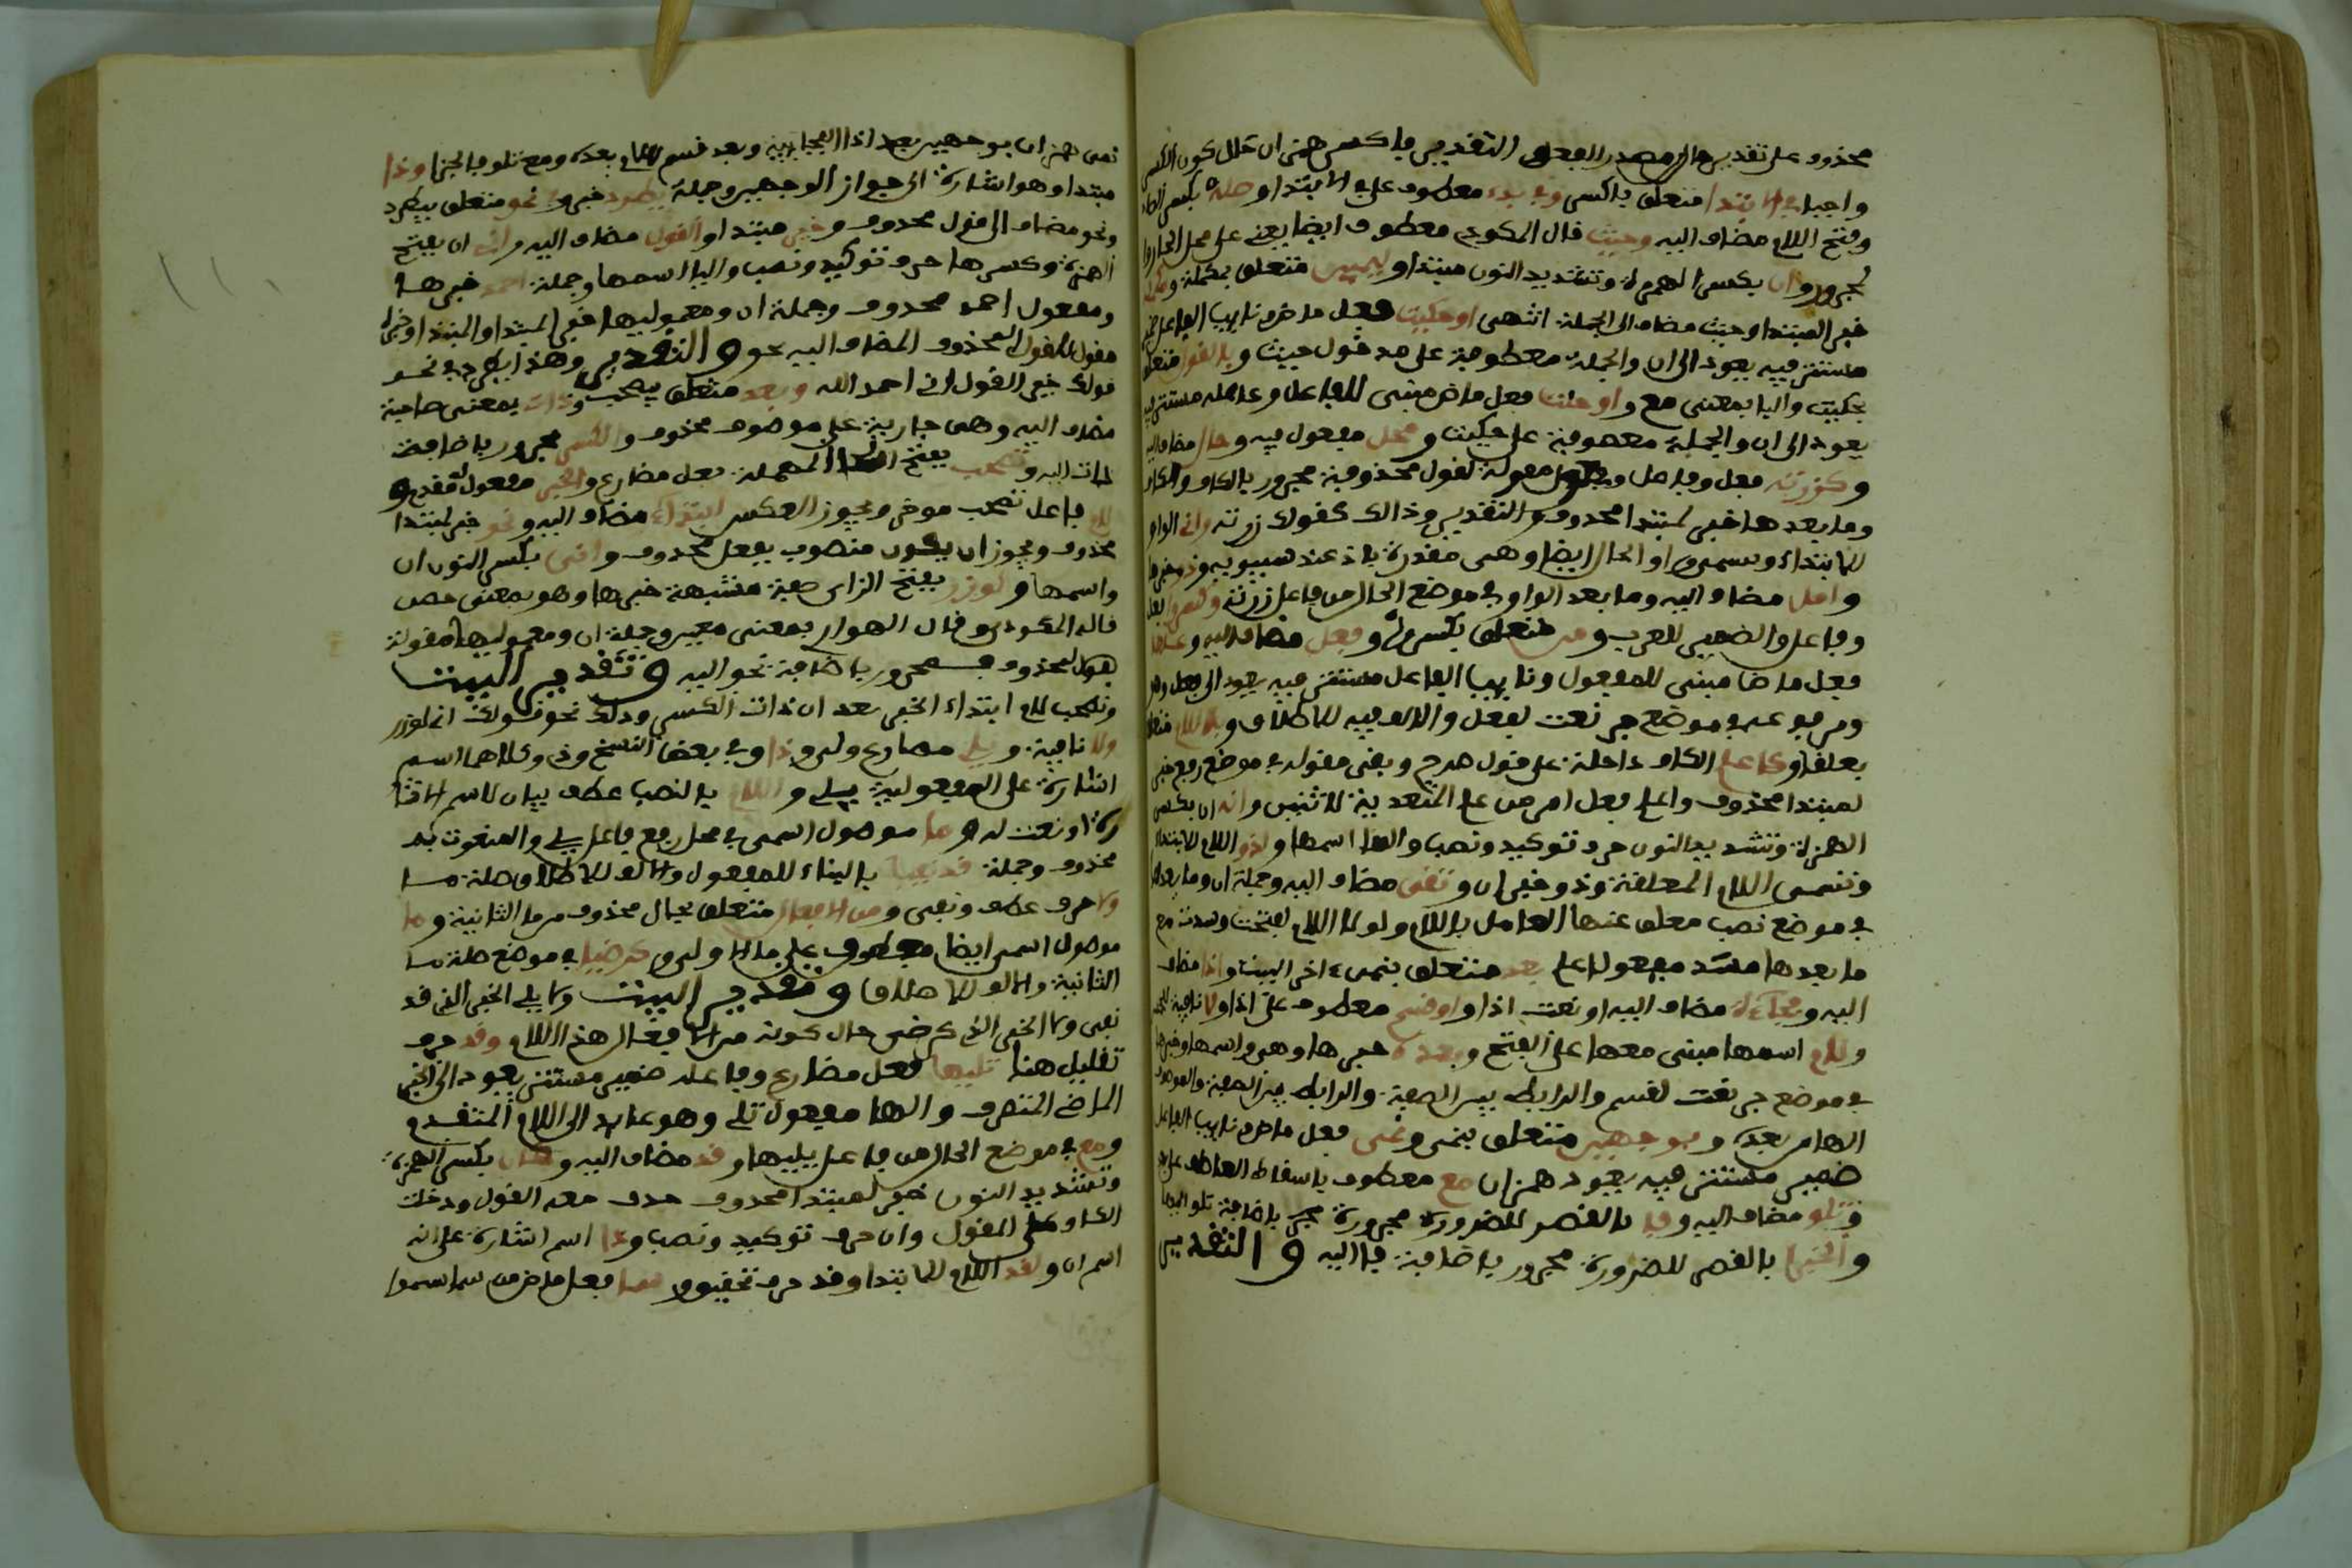 محذوف على تقدير حال مصدر الفعل والتقدير فاكسر همز ان حال كون الكسر
واجبا في الابتدا متعلق باكسر وفي بدء معطوف على في الابتدا وصله بكسر الصاد
وفتح اللام مضاف اليه وحيث قال المكودي معطوف ايضا يعني على محل الجار وا
لمجرور وان بكسر الهمزة وتشديد النون مبتدا وليمين متعلق بمكملة ومكملة
خبر المبتدا وحيث مضاف الى الجملة انتهى او حكيت فعل ماض ونايب الفاعل ضمير
مستتر فيه يعود الى ان والجملة معطوفة على مدخول حيث وبالقول متعلق
بحكيت والبا بمعنى مع او حلت فعل ماض مبني للفاعل وفاعله مستتر فيه
يعود الى ان والجملة معطوفة على حكيت ومحل مفعول فيه وحال مضاف اليه
وكزرته فعل وفاعل ومفعول مقولة لقول محذوف مجرور بالكاف والكاف
وما بعدها خبر لمبتدا محذوف والتقدير وذالك كقولك زرته واني الواو
للابتداء وتسمى واو الحال ايضا وهي مقدرة باذ عند سيبويه وذو خبرها
وامل مضاف اليه وما بعد الواو في موضع الحال من فاعل زرته وكسروا فعل
وفاعل والضمير للعرب ومن متعلق بكسروا وفعل مضاف اليه وعلقا
فعل ماض مبني للمفعول ونايب الفاعل مستتر فيه يعود الى فعل وهو
ومرفوعه في موضع جر نعت لفعل والالف فيه للاطلاق وباللام متعلق
بعلقا وكاعلم الكاف داخلة على قول مدرج وبقي مقوله في موضع رفع خبر
لمبتدا محذوف واعلم فعل امر من علم المتعدية لاثنين وانه ان بكسر
الهمزة وتشديد النون حرف توكيد ونصب والها اسمها ولذو اللام للابتداء
وتسمى اللام المعلقة وذو خبر ان وتقى مضاف اليه وجملة ان وما بعدها
في موضع نصب معلق عنها العامل باللام ولولا اللام لفتحت وسدت مع
ما بعدها مسد مفعولا علم بعد متعلق بنمي اخر البيت واذا مضاف
اليه وفجاءة مضاف اليه او نعت اذا او قسم معطوف على اذا ولا نافية للجنس
ولام اسمها مبني معها على الفتح وبعده خبرها وهي واسمها وخبرها
في موضع جر نعت لقسم والرابط بين الصفة والموصوف
الها من بعده وبوجهين متعلق بنمي ونمي فعل ماض ونايب الفاعل
ضمير مستتر فيه يعود همز ان مع معطوف باسقاط العاطف على بعد
وتلو مضاف اليه وفا بالقصر للضرورة مجرورة باضافة تلو اليها
والجزا بالقصر للضرورة مجرور باضافة فا اليه والتقدير
نمي همز ان بوجهين بعد اذا الفجاءية وبعد قسم لا لام بعده ومع تلو فا الجزا وذا
مبتدا وهو اشارة الى جواز الوجهين وجملة يطرد خبره وفي نحو متعلق بيطرد
ونحو مضاف الى قول محذوف وخير مبتدا والقول مضاف اليه واني ان بفتح
الهمزة وكسرها حرف توكيد ونصب واليا اسمها وجملة احمد خبرها
ومفعول احمد محذوف وجملة ان ومعموليها خبر المبتدا والمبتدا وخبره
مقول للقول المحذوف المضاف اليه نحو والتقدير وهذا يطرد في نحو
قولك خير القول اني احمد الله وبعد متعلق بتصحب وذات بمعنى صاحبة
مضاف اليه وهي جارية على موصوف محذوف والكسر مجرور باضافة
ذات اليه وتصحب بفتح الحا المهملة فعل مضارع والخبر مفعول مقدم و
لام فاعل تصحب موخر ويجوز العكس ابتداء مضاف اليه ونحو خبر لمبتدا
محذوف ويجوز ان يكون منصوب بفعل محذوف واني بكسر النون ان
واسمها ولوزر بفتح الزاي صفة مشبهة خبرها وهو بمعنى حصن
قاله المكودي وقال الهوار بمعنى معين وجملة ان ومعموليها مقولة
لقول محذوف مجرور باضافة نحو اليه وتقدير البيت
وتصحب لام ابتداء الخبر بعد ان ذات الكسر وذلك نحو قولك اني لوزر
ولا نافية ويلي مضارع ولي وذا وفي بعض النسخ وذي وكلاهما اسم
اشارة على المفعولية بيلي واللام بالنصب عطف بيان لاسم الاشا
رة او نعت له وما موصول اسمي في محل رفع فاعل يلي والمنعوت به
محذوف وجملة قد نفيا بالبناء للمفعول والالف للاطلاق صلة ما
ولا حرف عطف ونفي ومن الافعال متعلق بحال محذوف من ما الثانية وما
موصول اسمي ايضا معطوف على ما الاولى وكرضيا في موضع صلة ما
الثانية والالف للاطلاق وتقدير البيت ولا يلي الخبر الذي قد
نفي ولا الخبر الذي كرضي حال كونه من الافعال هذه اللام وقد حرف
تقليل هنا تليها فعل مضارع وفاعله ضمير مستتر يعود الى الخبر
الماضي المتصرف والها مفعول تلي وهو عايد الى اللام المتقدم
ومع في موضع الحال من فاعل يليها وقد مضاف اليه وكان بكسر الهمزة
وتشديد النون خبر لمبتدا محذوف حذف معه القول ودخلت
الكاف على المقول وان حرف توكيد ونصب وذا اسم اشارة على انه
اسم ان ولقد اللام للابتدا وقد حرف تحقيق وسما فعل ماض من سما يسموا